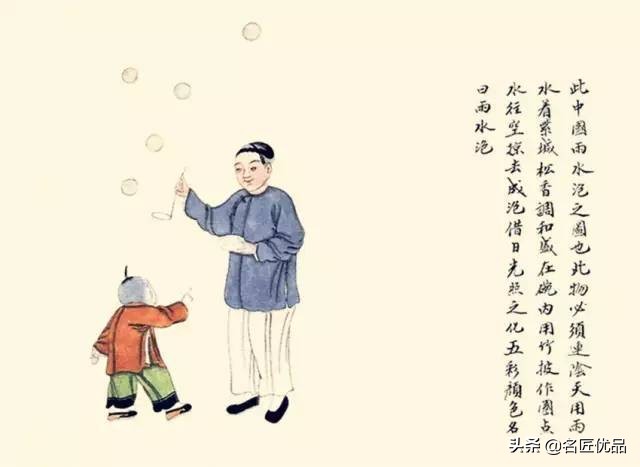 此中國雨水泡之圖也此物必須連陰天用雨
水着紫堿松香調和盛在碗内用竹披作圈点
水往空掠去成泡借日光照之化五彩顏色名
曰雨水泡
头条 @名匠优品